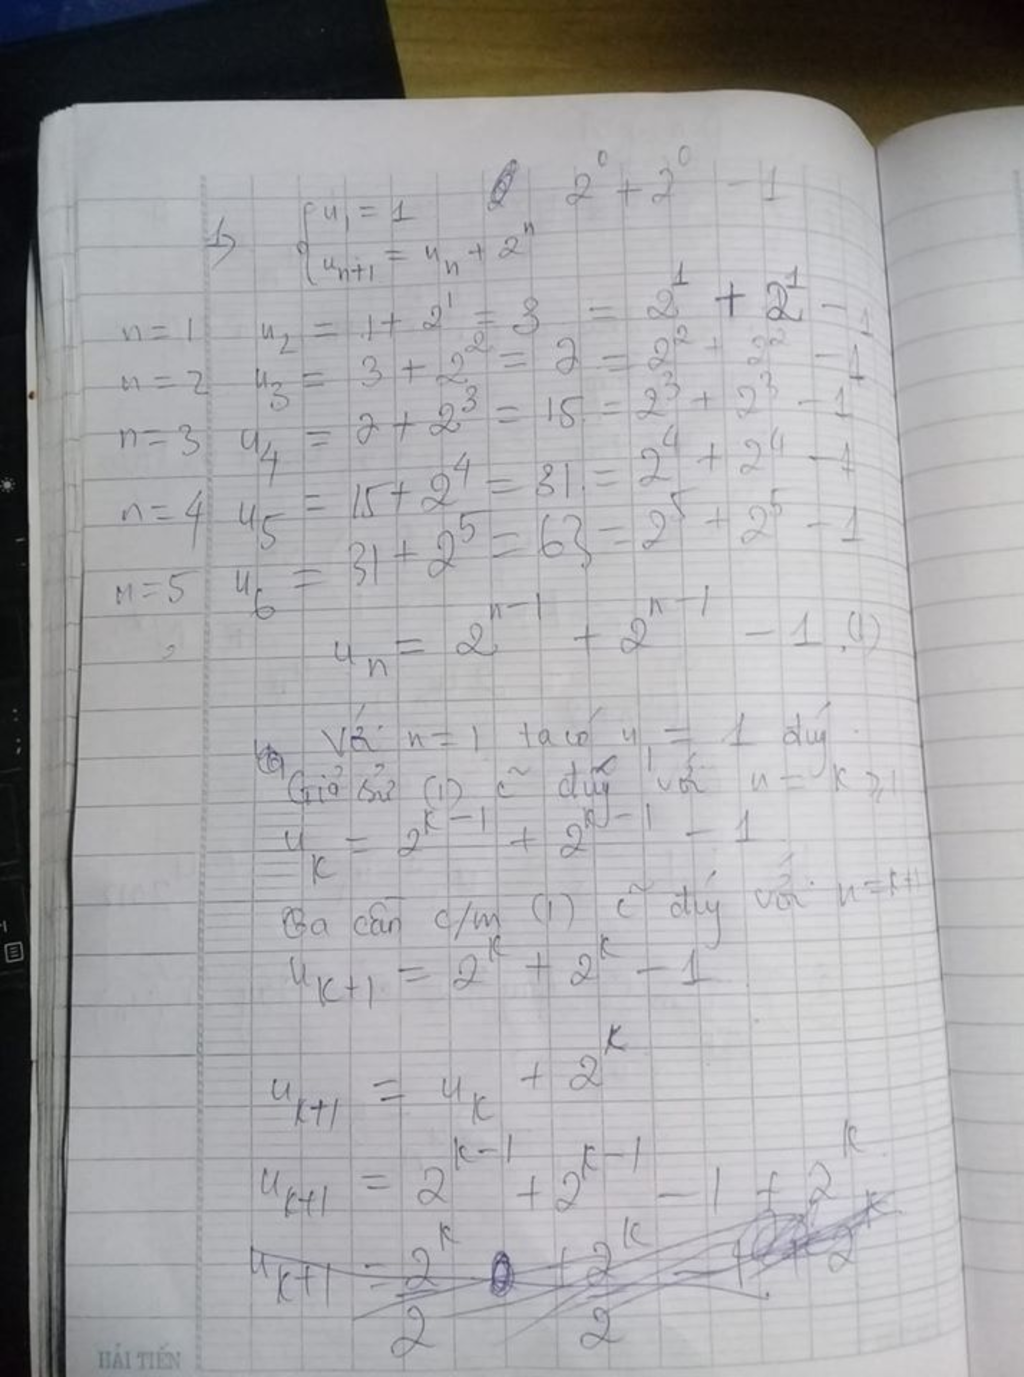 1) { u₁ = 1      2⁰ + 2⁰ - 1
uₙ₊₁ = uₙ + 2ⁿ
n = 1 u₂ = 1 + 2¹ = 3 = 2¹ + 2¹ - 1
n = 2 u₃ = 3 + 2² = 7 = 2² + 2² - 1
n = 3 u₄ = 7 + 2³ = 15 = 2³ + 2³ - 1
n = 4 u₅ = 15 + 2⁴ = 31 = 2⁴ + 2⁴ - 1
n = 5 u₆ = 31 + 2⁵ = 63 = 2⁵ + 2⁵ - 1
uₙ = 2ⁿ⁻¹ + 2ⁿ⁻¹ - 1 (1)
Với n = 1 ta có u₁ = 1 đúg
Giả sử (1) c~ đúg với n = k ⩾ 1
uₖ = 2ᵏ⁻¹ + 2ᵏ⁻¹ - 1
Ta cần c/m (1) c~ đúg với n = k+1
uₖ₊₁ = 2ᵏ + 2ᵏ - 1
uₖ₊₁ = uₖ + 2ᵏ
uₖ₊₁ = 2ᵏ⁻¹ + 2ᵏ⁻¹ - 1 + 2ᵏ
uₖ₊₁ = 2ᵏ/2 + 2ᵏ/2 - 1 + 2ᵏ
HẢI TIẾN